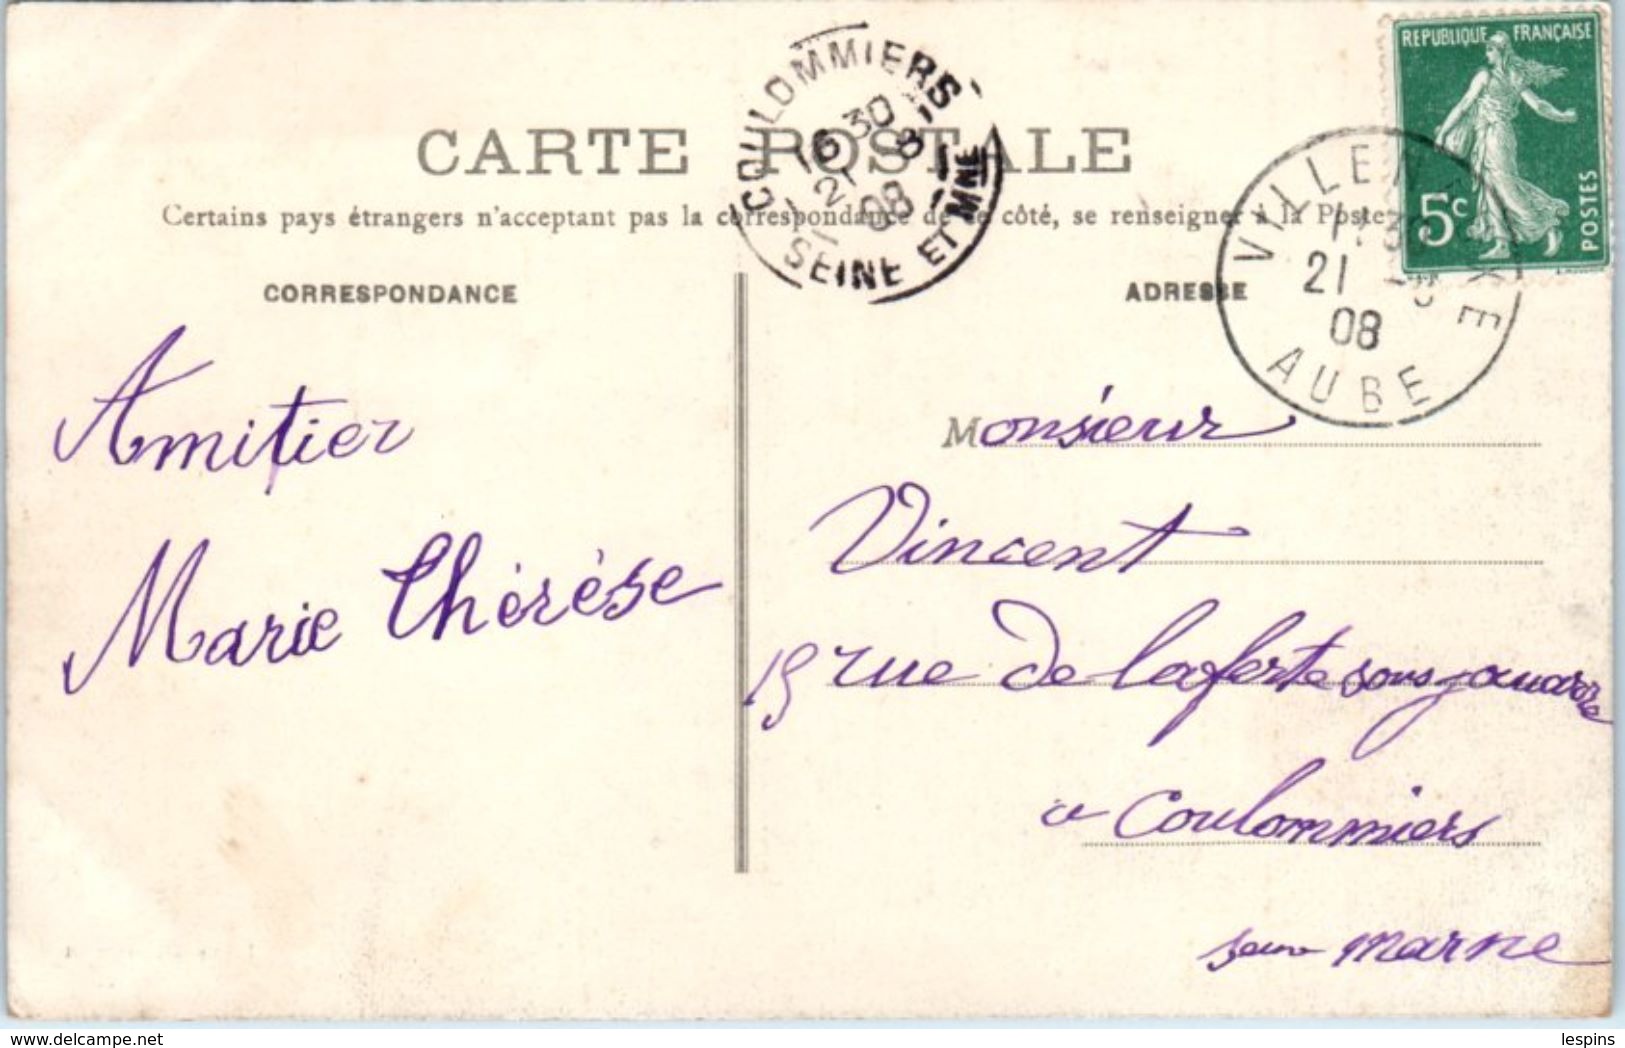 CARTE POSTALE
Certains pays étrangers n'acceptant pas la correspondance de ce côté, se renseigner à la Poste
CORRESPONDANCE
ADRESSE
COULOMMIERS
16 30
21 8
08
SEINE ET MNE
REPUBLIQUE FRANÇAISE
5c
POSTES
21
08
AUBE
Amitier
Marie Thérèse
Monsieur
Vincent
19 rue de laferte sous jouarre
a Coulommiers
Seine Marne
www.delcampe.net
lespins